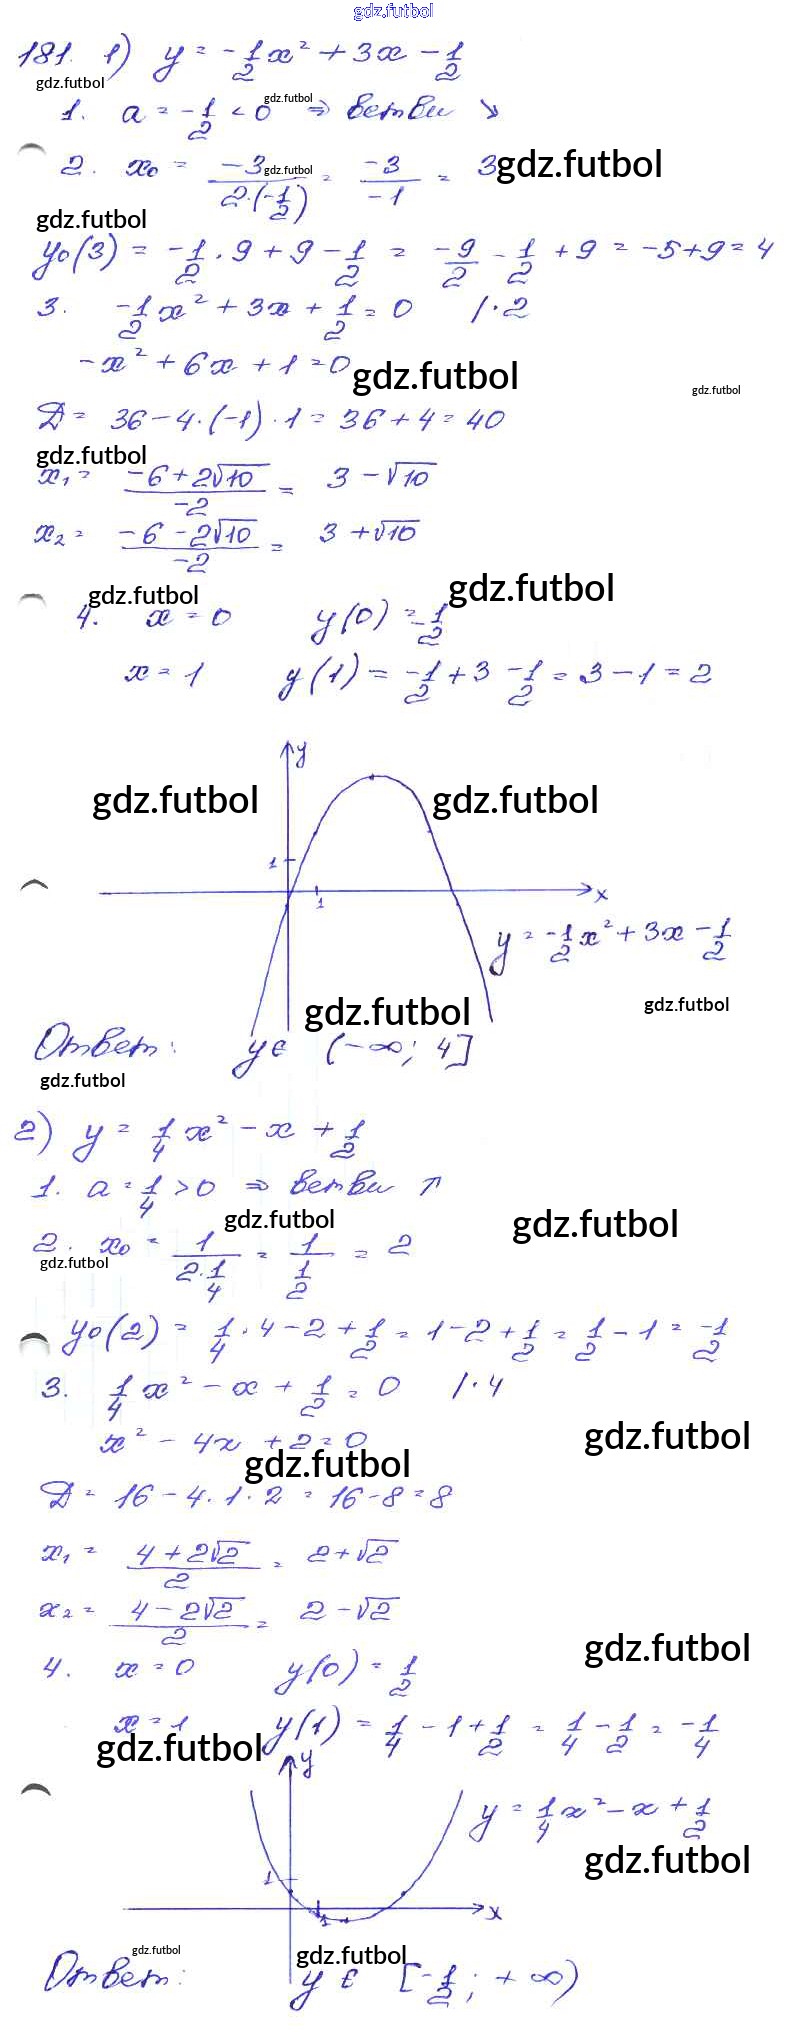 gdz.futbol
181. 1) y = -1/2 x² + 3x - 1/2
gdz.futbol
1. a = -1/2 < 0 ⇒ ветви ↘
gdz.futbol
2. x₀ = -3/(2·(-1/2)) = -3/-1 = 3
gdz.futbol
gdz.futbol
gdz.futbol
y₀(3) = -1/2 · 9 + 9 - 1/2 = -9/2 - 1/2 + 9 = -5+9 = 4
3. -1/2 x² + 3x + 1/2 = 0 /·2
-x² + 6x + 1 = 0
gdz.futbol
gdz.futbol
Д = 36 - 4·(-1)·1 = 36 + 4 = 40
gdz.futbol
x₁ = (-6+2√10)/-2 = 3 - √10
x₂ = (-6-2√10)/-2 = 3 + √10
gdz.futbol
gdz.futbol
4. x = 0 y(0) = -1/2
x = 1 y(1) = -1/2 + 3 - 1/2 = 3 - 1 = 2
y
gdz.futbol
gdz.futbol
1
1
x
y = -1/2 x² + 3x - 1/2
gdz.futbol
gdz.futbol
Ответ: y ∈ (-∞; 4]
gdz.futbol
2) y = 1/4 x² - x + 1/2
1. a = 1/4 > 0 ⇒ ветви ↗
gdz.futbol
gdz.futbol
2. x₀ = 1/(2·1/4) = 1/(1/2) = 2
gdz.futbol
y₀(2) = 1/4 · 4 - 2 + 1/2 = 1 - 2 + 1/2 = 1/2 - 1 = -1/2
3. 1/4 x² - x + 1/2 = 0 /·4
x² - 4x + 2 = 0
gdz.futbol
gdz.futbol
Д = 16 - 4·1·2 = 16 - 8 = 8
x₁ = (4+2√2)/2 = 2+√2
x₂ = (4-2√2)/2 = 2-√2
gdz.futbol
4. x = 0 y(0) = 1/2
x = 1 y(1) = 1/4 - 1 + 1/2 = 1/4 - 1/2 = -1/4
gdz.futbol
y
y = 1/4 x² - x + 1/2
gdz.futbol
1
1
x
gdz.futbol
gdz.futbol
Ответ: y ∈ [-1/2; +∞)